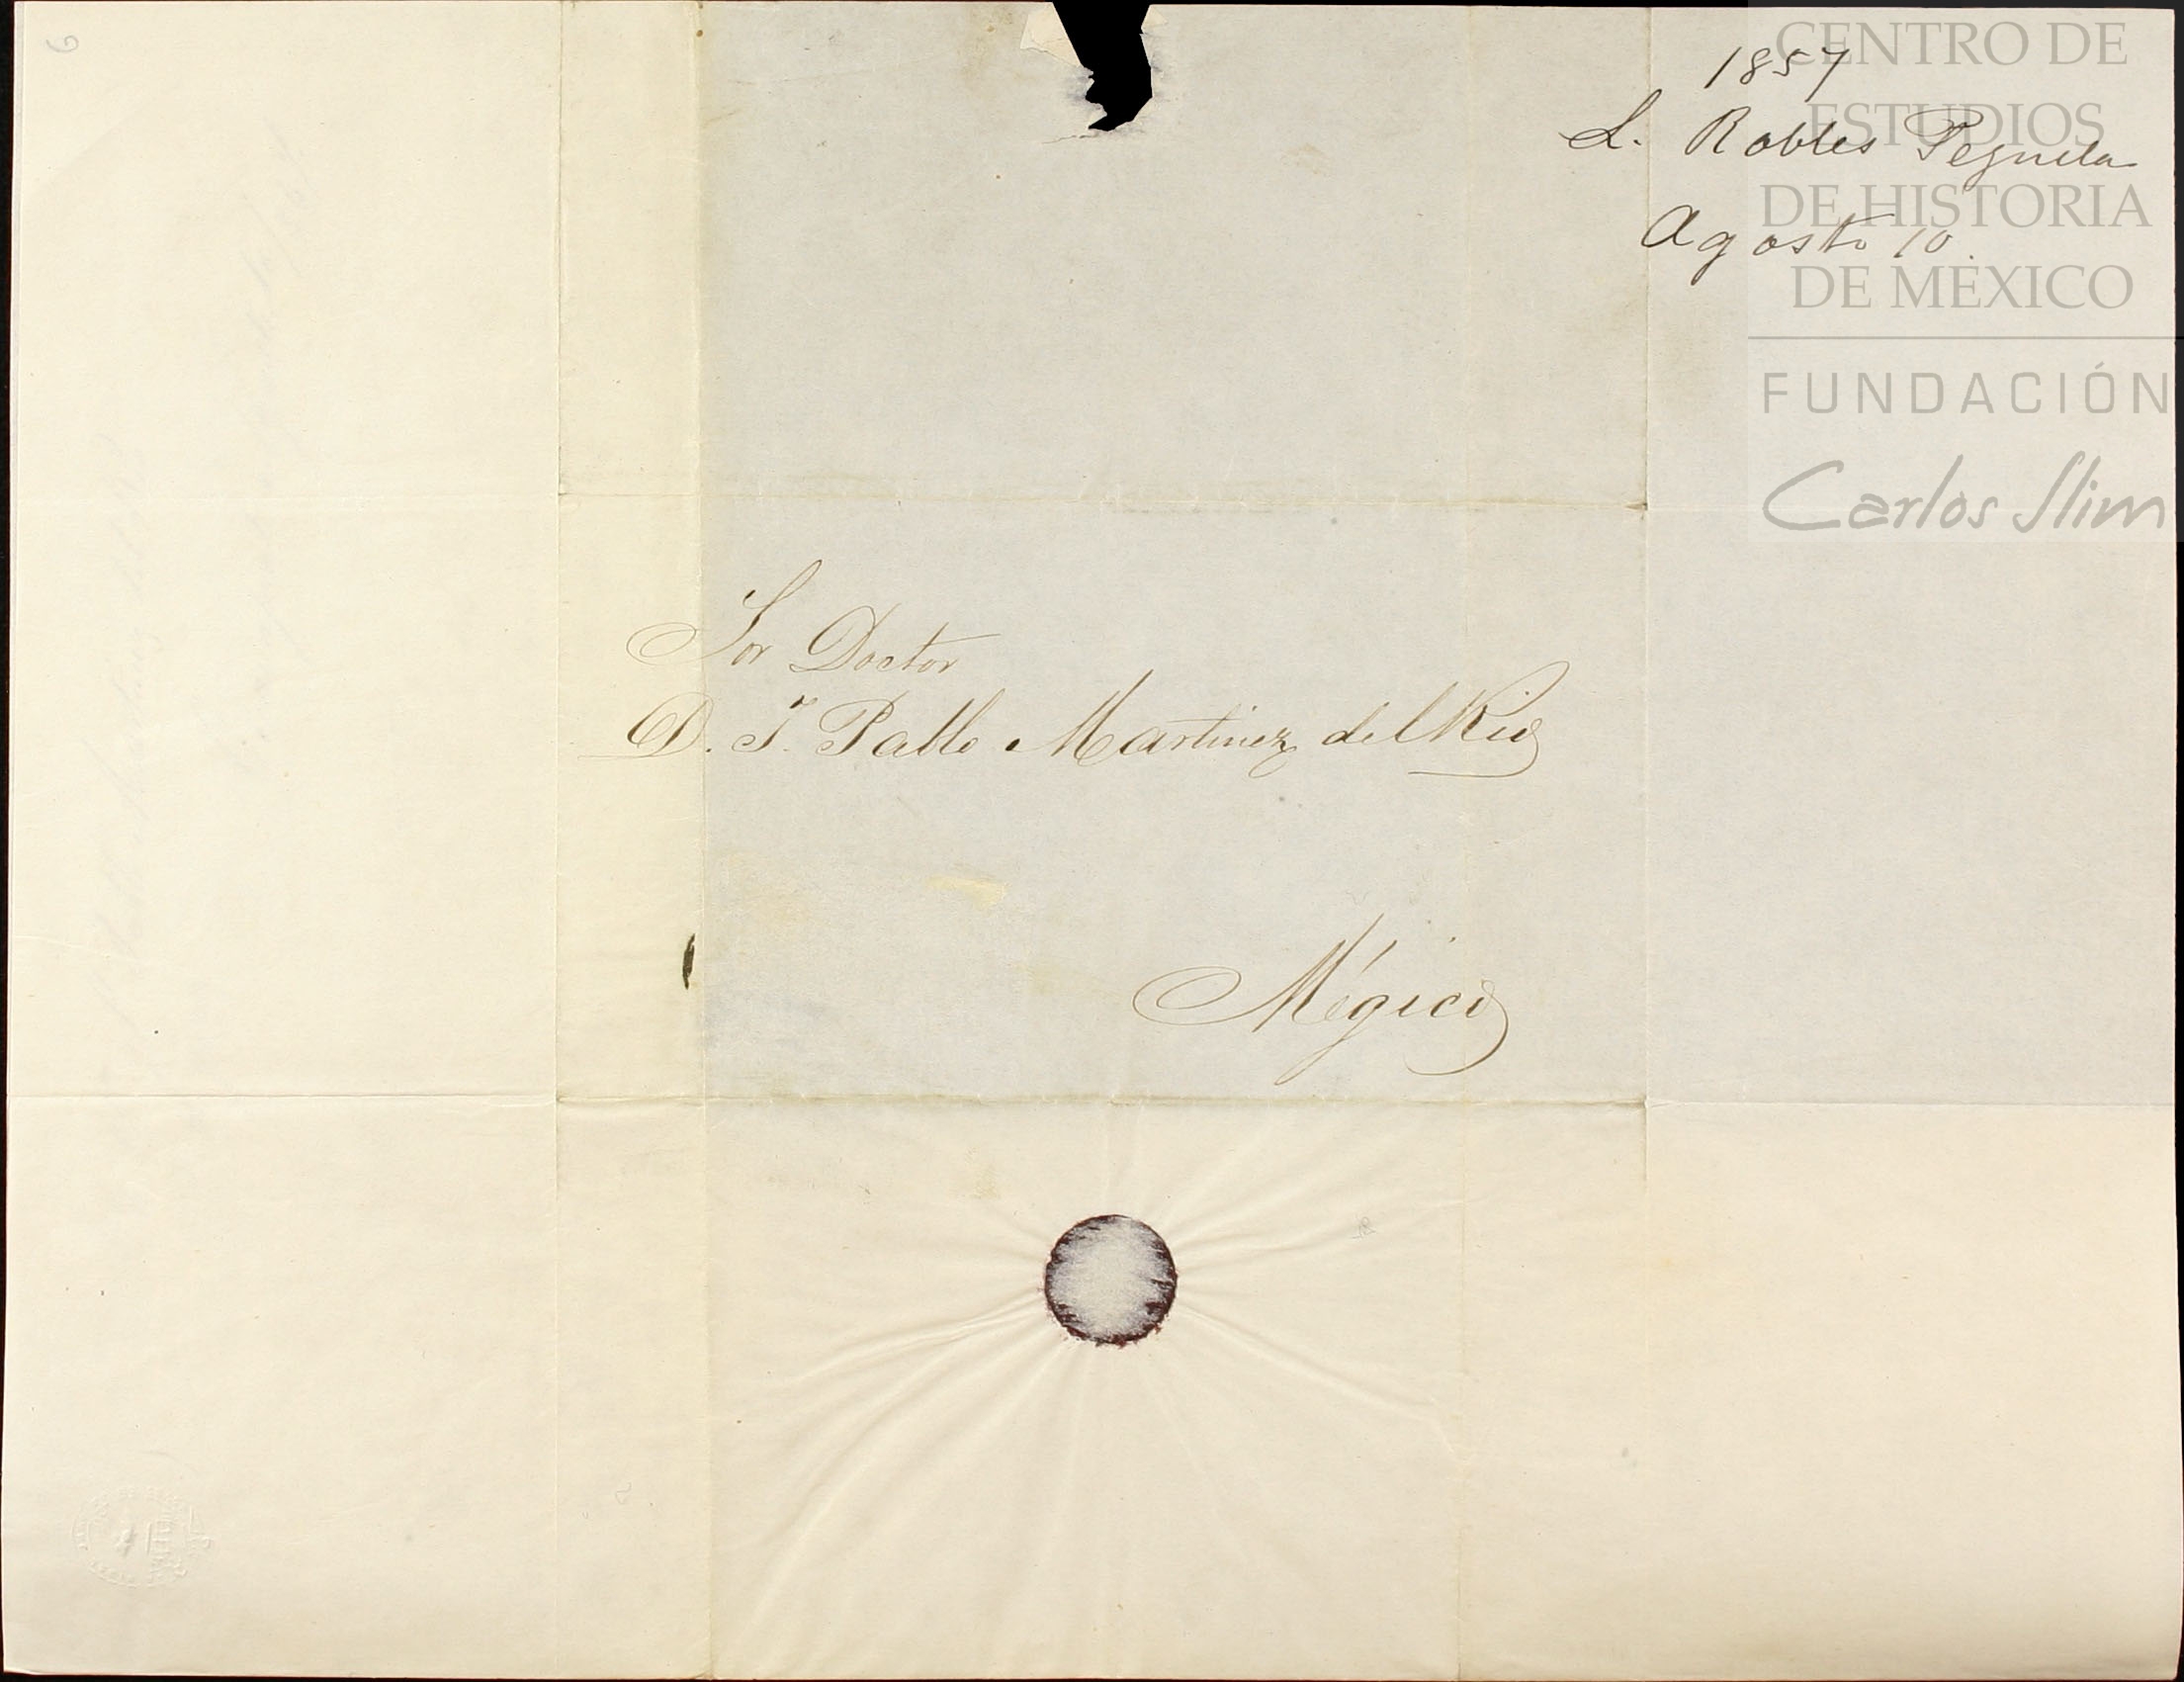 1857
L. Robles Pezuela
Agosto 10.
CENTRO DE
ESTUDIOS
DE HISTORIA
DE MÉXICO
FUNDACIÓN
Carlos Slim
Sor Doctor
D. J. Pablo Martinez del Rio
Mégico